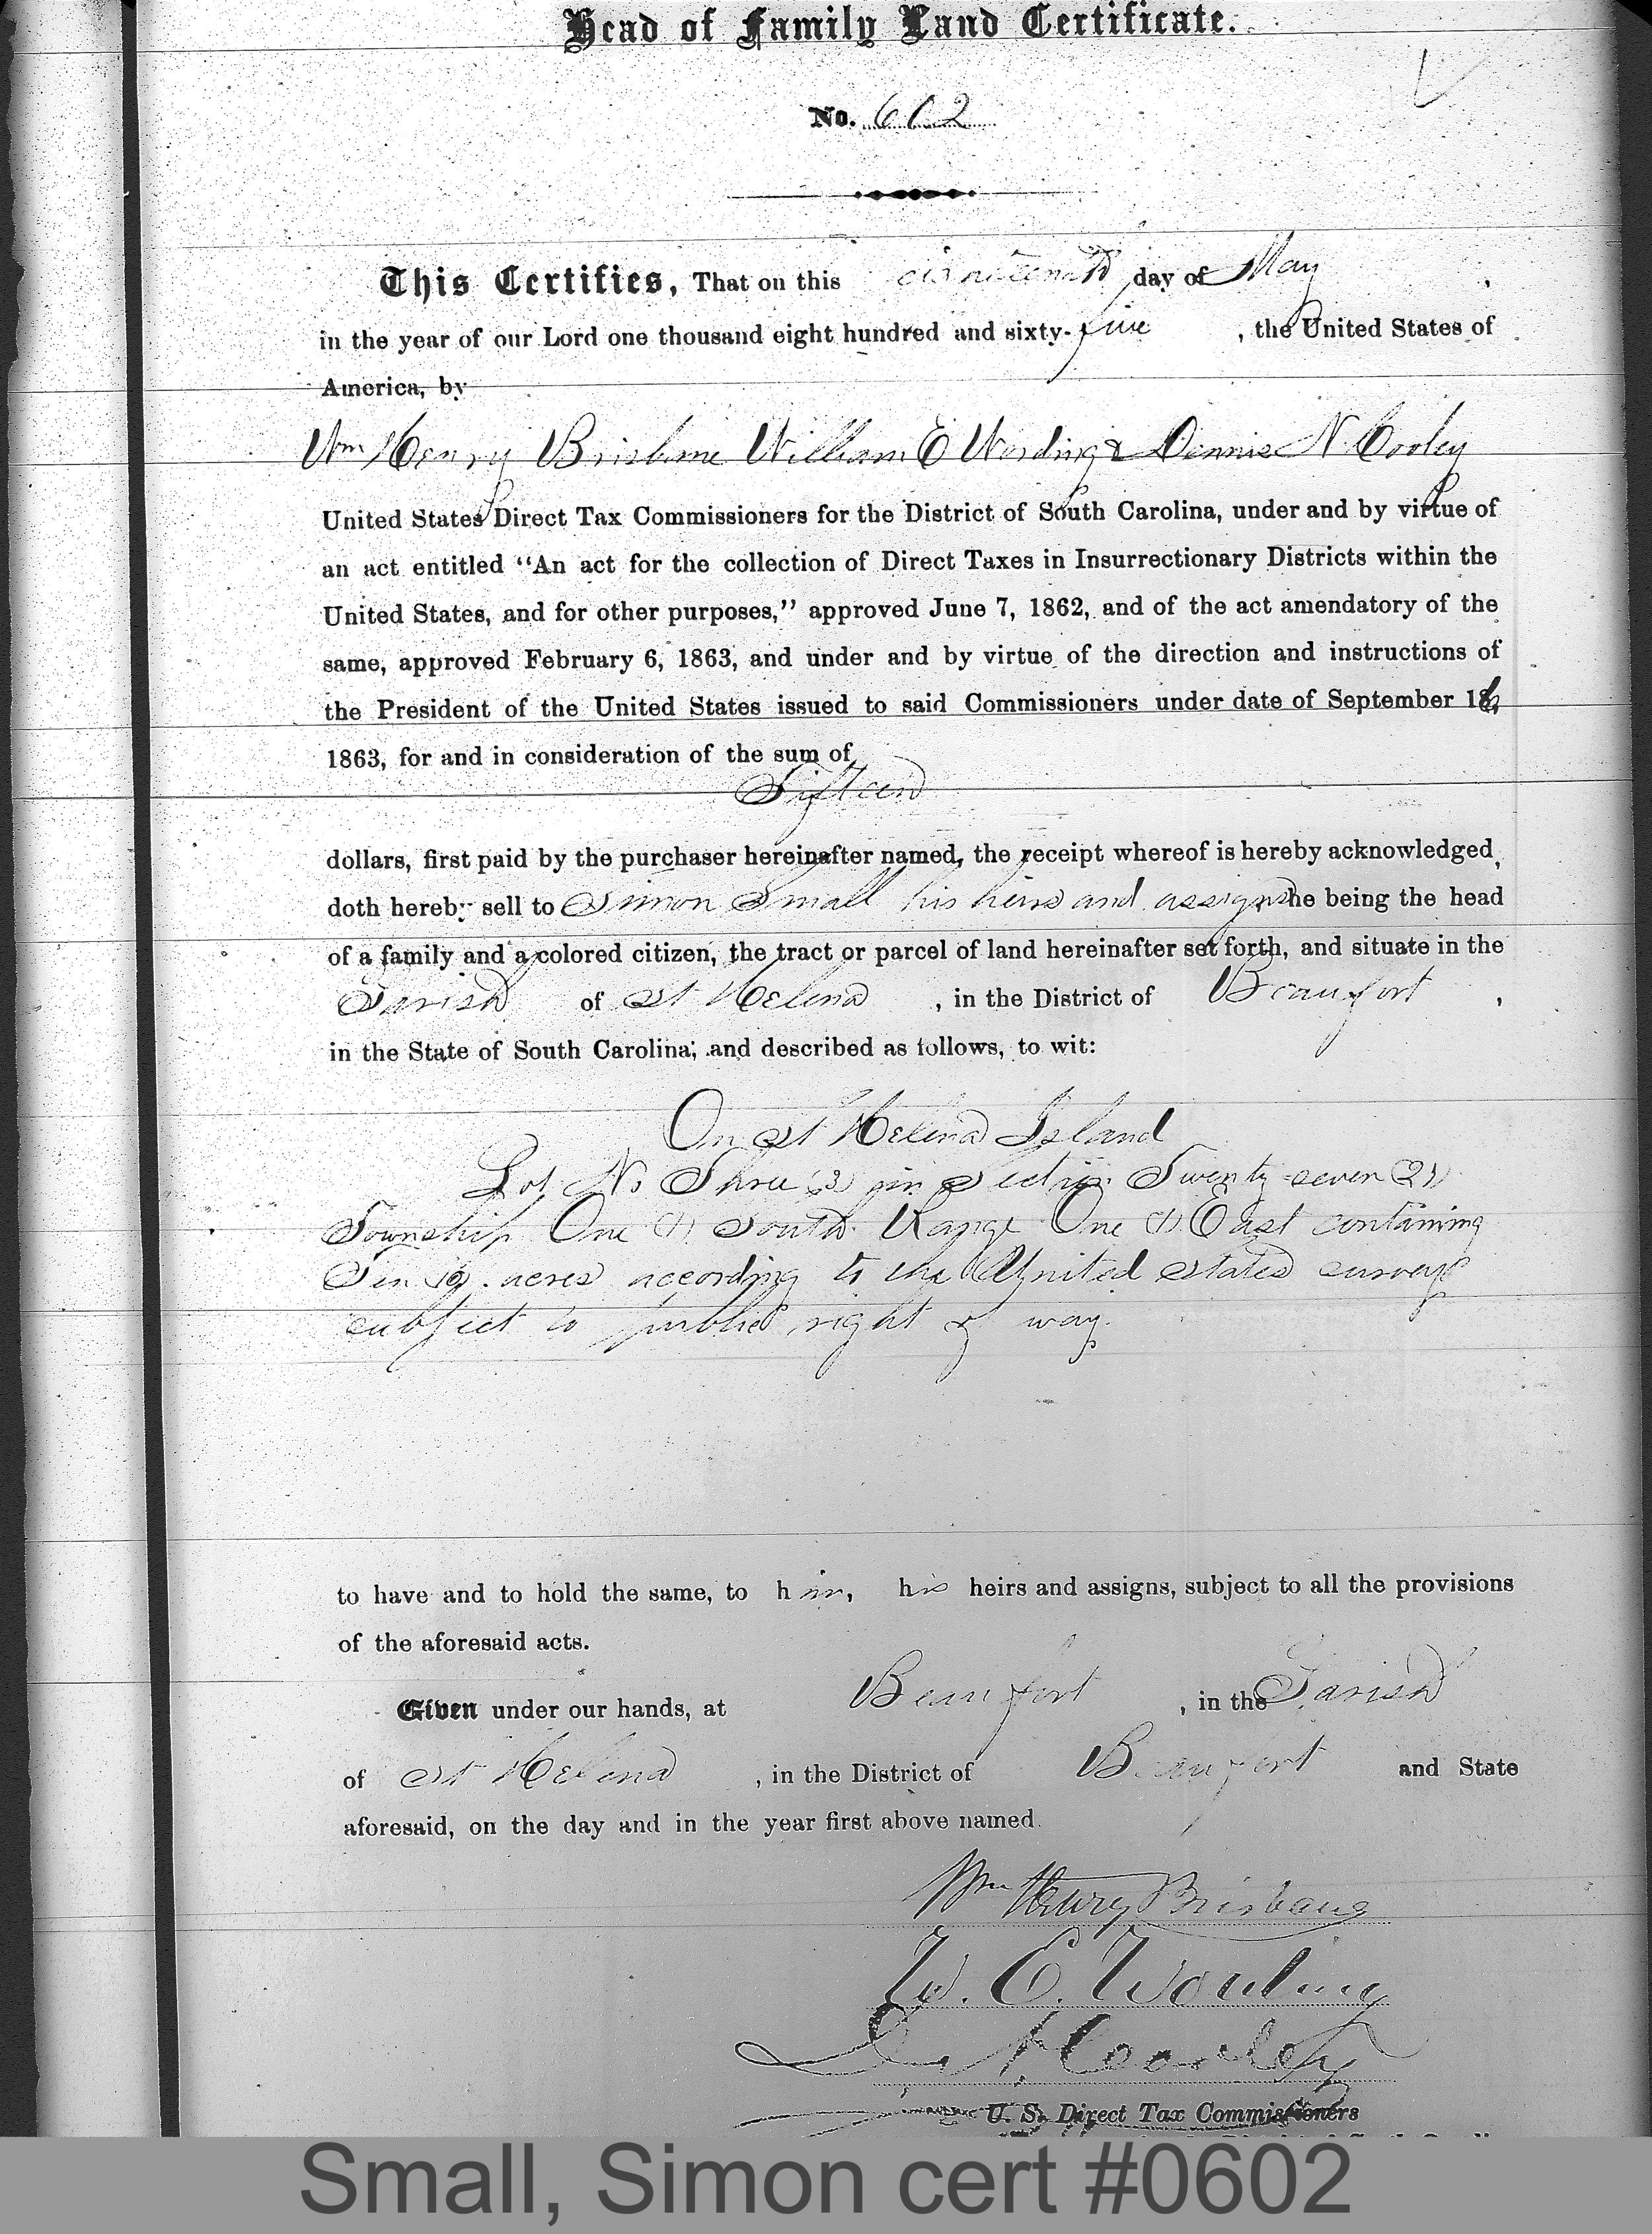 Head of Family Land Certificate.
No. 602
This Certifies, That on this day of May,
in the year of our Lord one thousand eight hundred and sixty-five, the United States of
America, by
Wm Henry Brisbane William E Wording & Dennis N Cooley
United States Direct Tax Commissioners for the District of South Carolina, under and by virtue of
an act entitled "An act for the collection of Direct Taxes in Insurrectionary Districts within the
United States, and for other purposes," approved June 7, 1862, and of the act amendatory of the
same, approved February 6, 1863, and under and by virtue of the direction and instructions of
the President of the United States issued to said Commissioners under date of September 16,
1863, for and in consideration of the sum of
Fifteen
dollars, first paid by the purchaser hereinafter named, the receipt whereof is hereby acknowledged,
doth hereby sell to Simon Small his heirs and assigns he being the head
of a family and a colored citizen, the tract or parcel of land hereinafter set forth, and situate in the
Parish of St Helena, in the District of Beaufort,
in the State of South Carolina; and described as follows, to wit:
On St Helena Island
Lot No Three (3) in Section Twenty seven (27)
Township One (1) South Range One (1) East containing
Ten (10) acres according to the United States surveys
subject to public right of way.
to have and to hold the same, to him, his heirs and assigns, subject to all the provisions
of the aforesaid acts.
Given under our hands, at Beaufort, in the Parish
of St Helena, in the District of Beaufort and State
aforesaid, on the day and in the year first above named.
Wm Henry Brisbane
W. E. Wording
D. N. Cooley
U. S. Direct Tax Commissioners
Small, Simon cert #0602